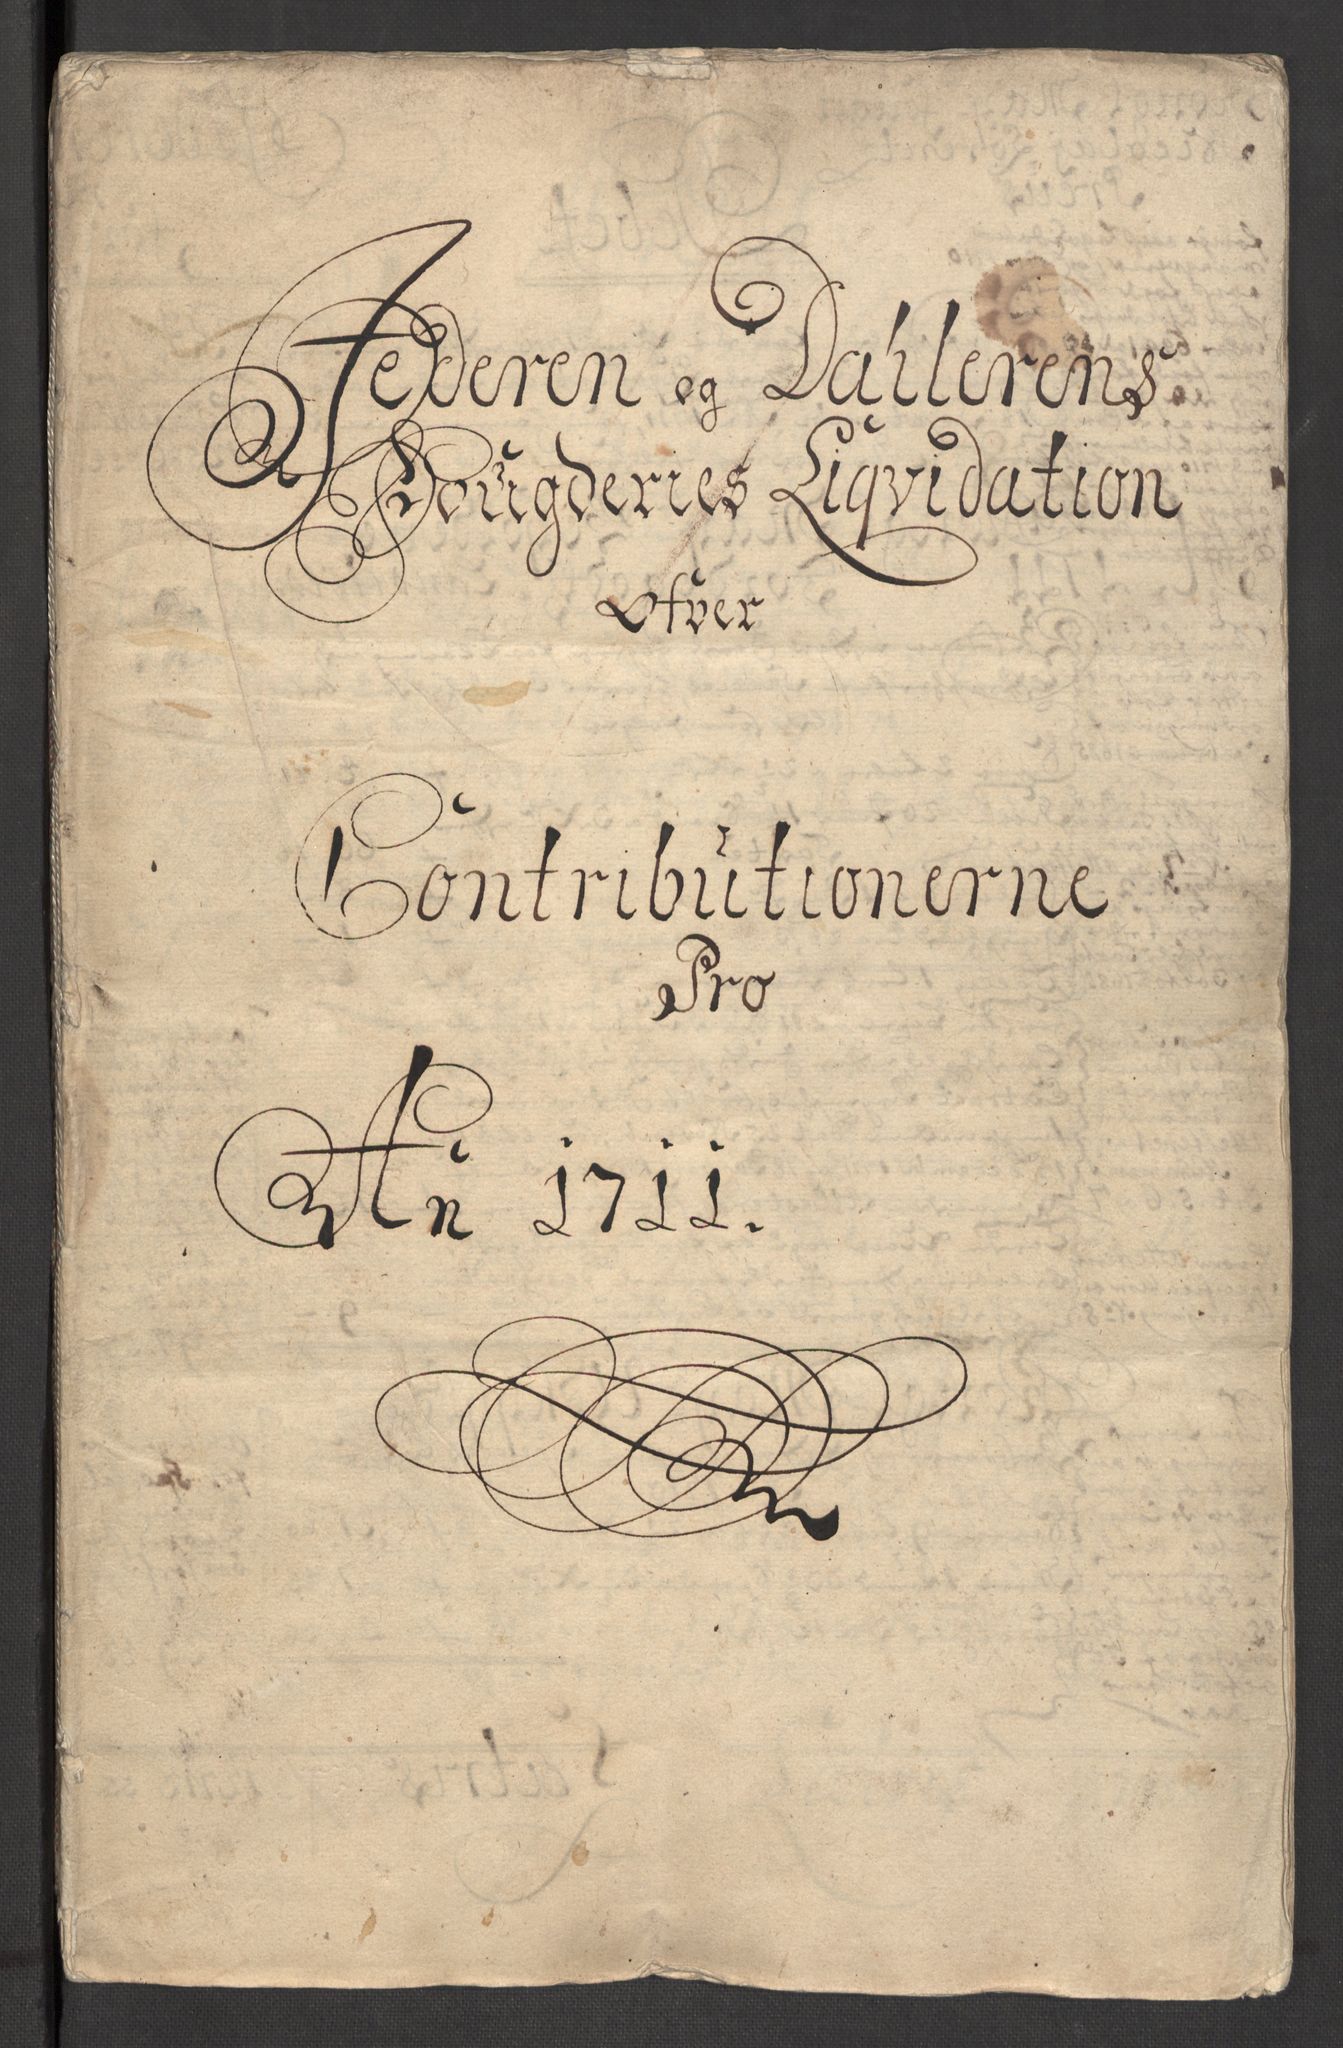 Jederen og Dahlerens
Fougderies Liqvidation
Ofver
Contributionerne
Pro
An 1711.